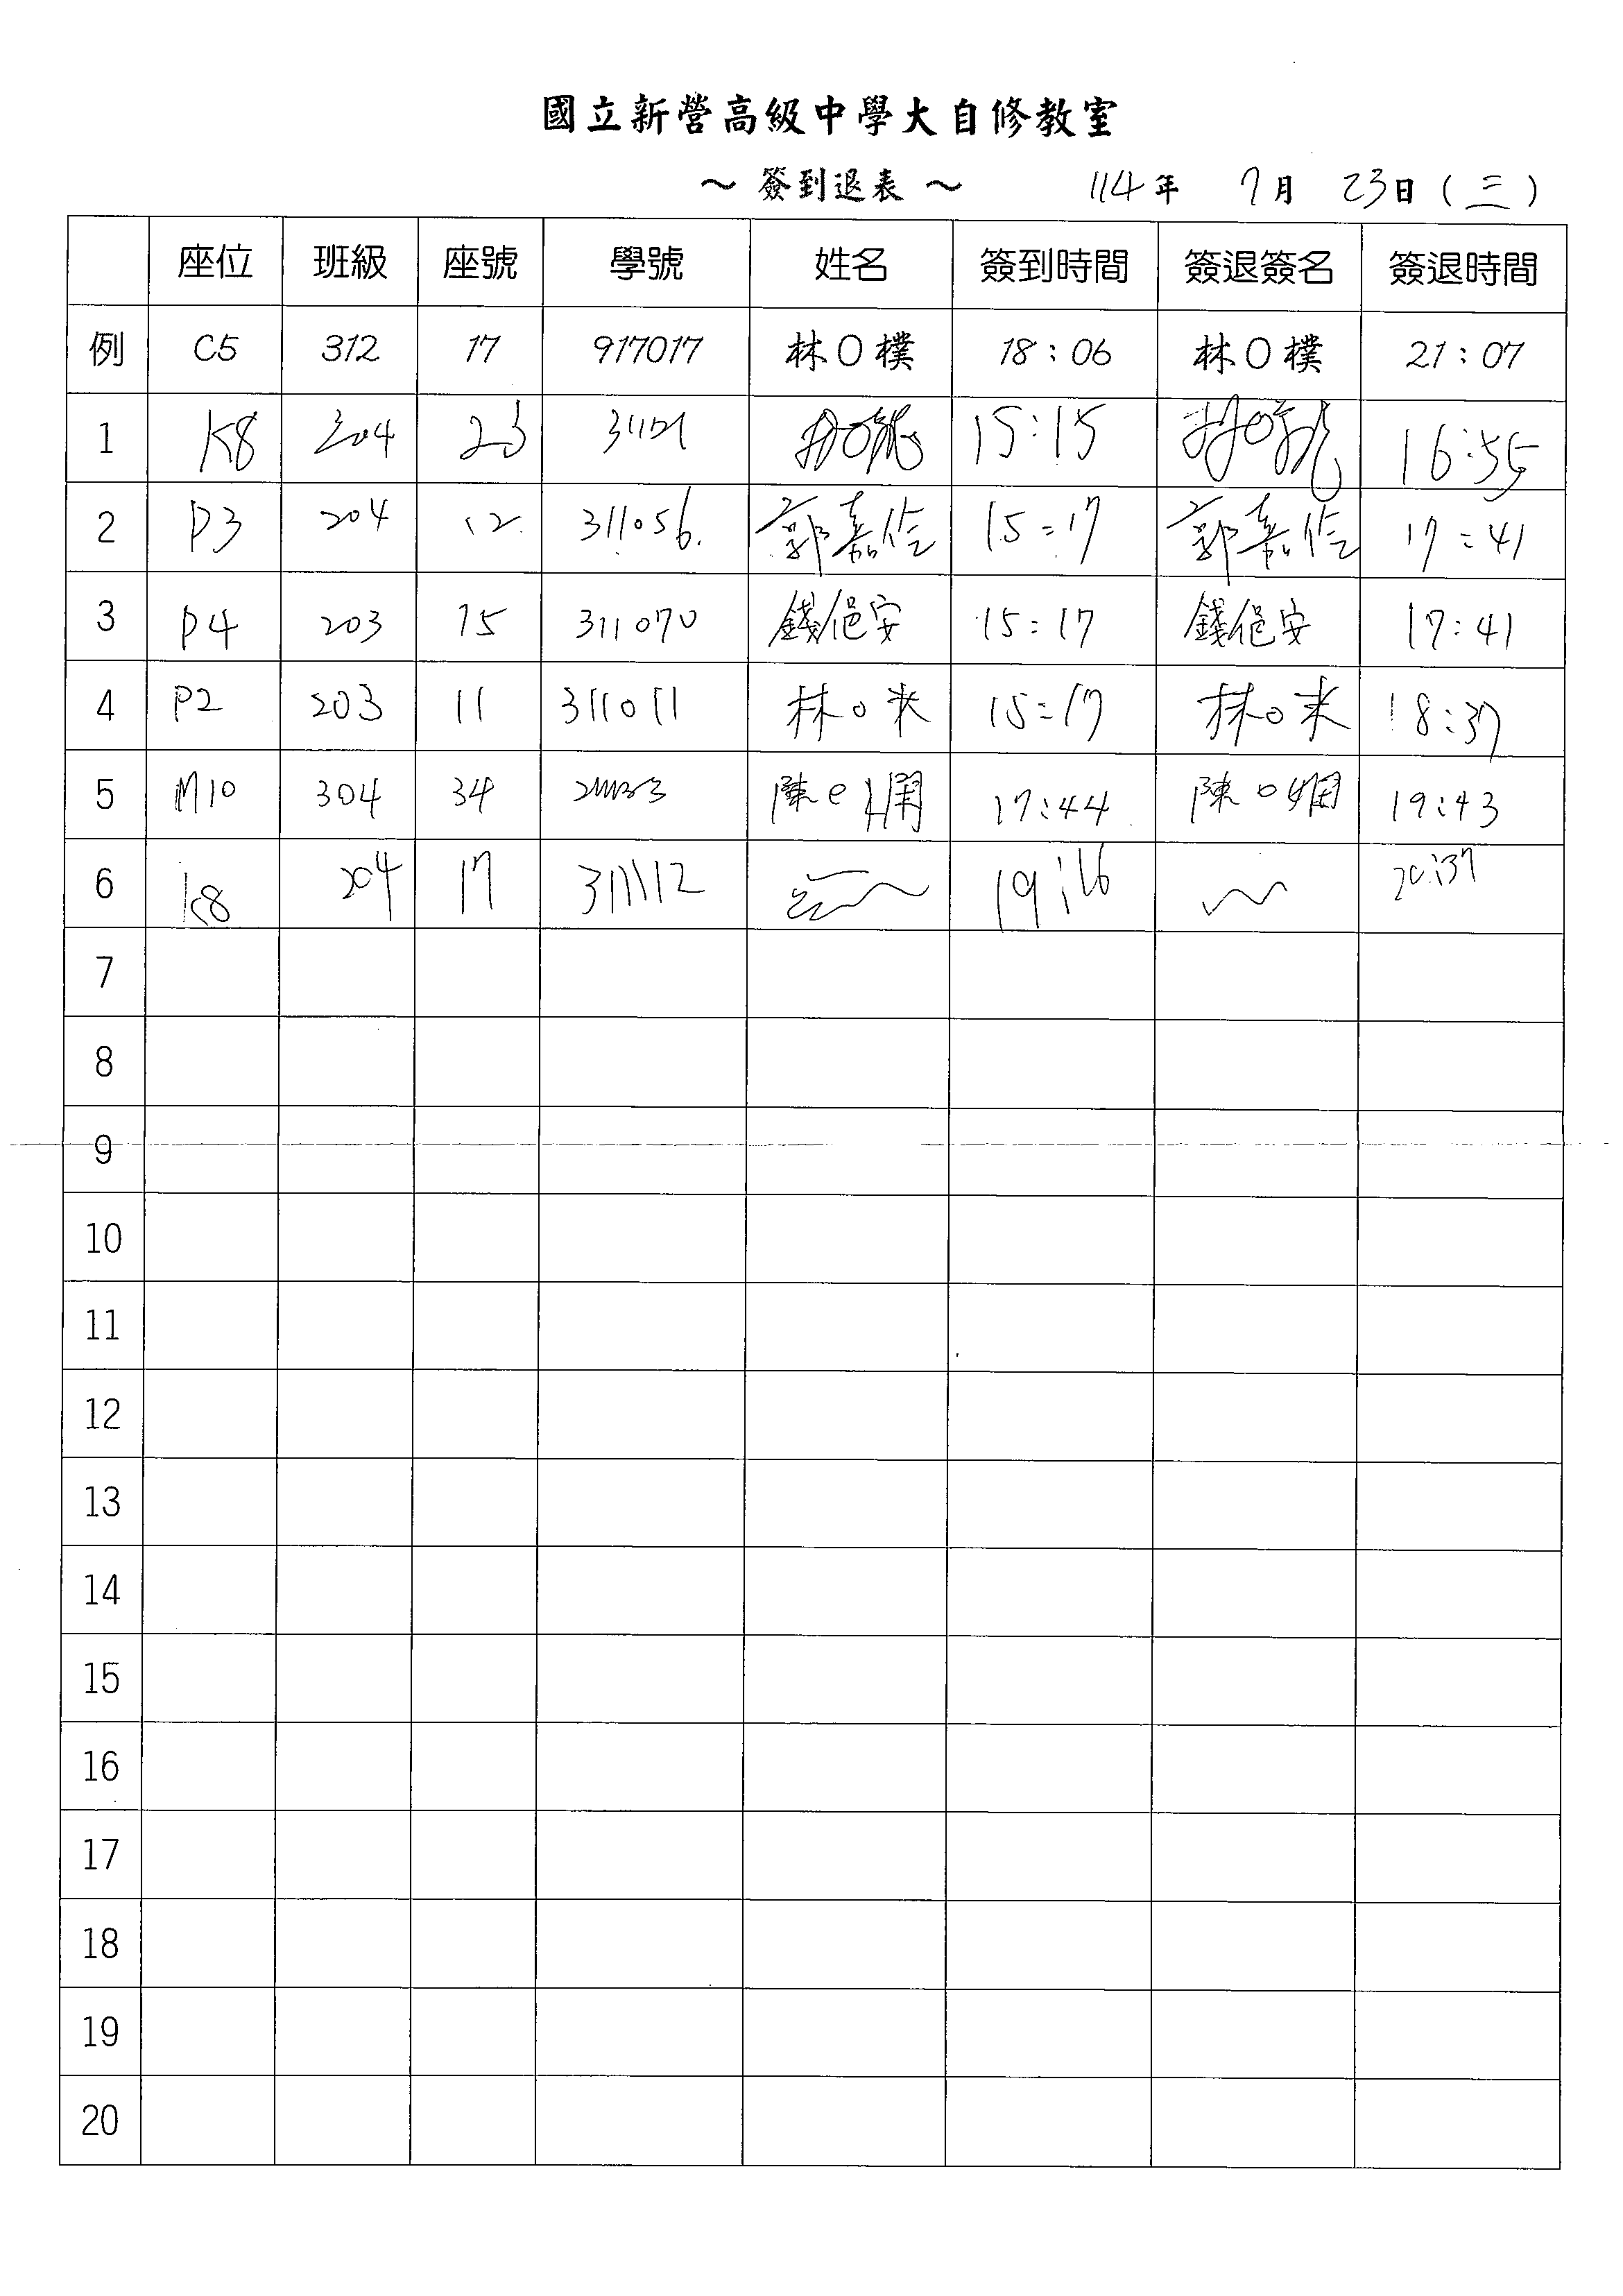 國立新營高級中學大自修教室
～ 簽到退表 ～ 114年 7月 23日(三)
座位 班級 座號 學號 姓名 簽到時間 簽退簽名 簽退時間
例 C5 312 17 917017 林O樸 18:06 林O樸 21:07
1 K8 204 23 15:15 16:55
2 P3 204 12 311056 郭嘉 15:17 郭嘉 17:41
3 P4 203 15 311070 錢俋安 15:17 錢俋安 17:41
4 P2 203 11 311011 林O 15:17 林O 18:37
5 M10 304 34 陳O 17:44 陳O嫻 19:43
6 K8 204 17 311112 19:16 20:37
7
8
9
10
11
12
13
14
15
16
17
18
19
20